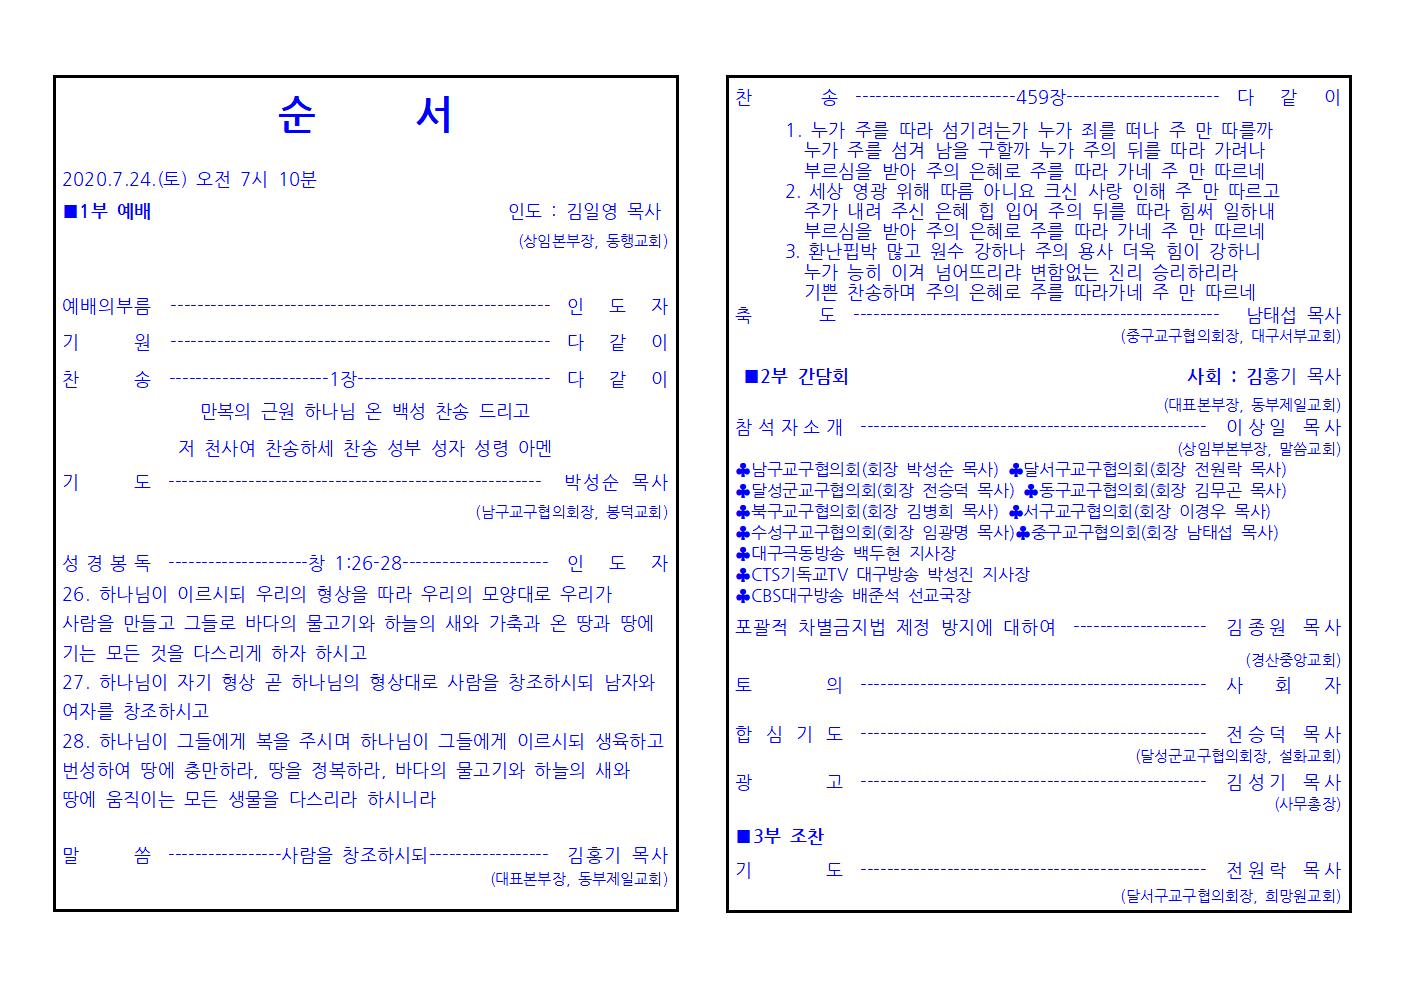 순 서
2020.7.24.(토) 오전 7시 10분
■1부 예배 인도 : 김일영 목사
(상임본부장, 동행교회)
예배의부름 ---------------------------------------------------------- 인 도 자
기 원 ---------------------------------------------------------- 다 같 이
찬 송 ------------------------1장----------------------------- 다 같 이
만복의 근원 하나님 온 백성 찬송 드리고
저 천사여 찬송하세 찬송 성부 성자 성령 아멘
기 도 --------------------------------------------------------- 박성순 목사
(남구교구협의회장, 봉덕교회)
성 경 봉 독 ---------------------창 1:26-28---------------------- 인 도 자
26. 하나님이 이르시되 우리의 형상을 따라 우리의 모양대로 우리가
사람을 만들고 그들로 바다의 물고기와 하늘의 새와 가축과 온 땅과 땅에
기는 모든 것을 다스리게 하자 하시고
27. 하나님이 자기 형상 곧 하나님의 형상대로 사람을 창조하시되 남자와
여자를 창조하시고
28. 하나님이 그들에게 복을 주시며 하나님이 그들에게 이르시되 생육하고
번성하여 땅에 충만하라, 땅을 정복하라, 바다의 물고기와 하늘의 새와
땅에 움직이는 모든 생물을 다스리라 하시니라
말 씀 -----------------사람을 창조하시되------------------ 김홍기 목사
(대표본부장, 동부제일교회)
찬 송 ------------------------459장----------------------- 다 같 이
1. 누가 주를 따라 섬기려는가 누가 죄를 떠나 주 만 따를까
누가 주를 섬겨 남을 구할까 누가 주의 뒤를 따라 가려나
부르심을 받아 주의 은혜로 주를 따라 가네 주 만 따르네
2. 세상 영광 위해 따름 아니요 크신 사랑 인해 주 만 따르고
주가 내려 주신 은혜 힙 입어 주의 뒤를 따라 힘써 일하내
부르심을 받아 주의 은혜로 주를 따라 가네 주 만 따르네
3. 환난핍박 많고 원수 강하나 주의 용사 더욱 힘이 강하니
누가 능히 이겨 넘어뜨리랴 변함없는 진리 승리하리라
기쁜 찬송하며 주의 은혜로 주를 따라가네 주 만 따르네
축 도 -------------------------------------------------------- 남태섭 목사
(중구교구협의회장, 대구서부교회)
■2부 간담회 사회 : 김홍기 목사
(대표본부장, 동부제일교회)
참 석 자 소 개 ----------------------------------------------------- 이 상 일 목 사
(상임부본부장, 말씀교회)
♣남구교구협의회(회장 박성순 목사) ♣달서구교구협의회(회장 전원락 목사)
♣달성군교구협의회(회장 전승덕 목사) ♣동구교구협의회(회장 김무곤 목사)
♣북구교구협의회(회장 김병희 목사) ♣서구교구협의회(회장 이경우 목사)
♣수성구교구협의회(회장 임광명 목사)♣중구교구협의회(회장 남태섭 목사)
♣대구극동방송 백두현 지사장
♣CTS기독교TV 대구방송 박성진 지사장
♣CBS대구방송 배준석 선교국장
포괄적 차별금지법 제정 방지에 대하여 -------------------- 김 종 원 목 사
(경산중앙교회)
토 의 ----------------------------------------------------- 사 회 자
합 심 기 도 ----------------------------------------------------- 전 승 덕 목 사
(달성군교구협의회장, 설화교회)
광 고 ----------------------------------------------------- 김 성 기 목 사
(사무총장)
■3부 조찬
기 도 ----------------------------------------------------- 전 원 락 목 사
(달서구교구협의회장, 희망원교회)